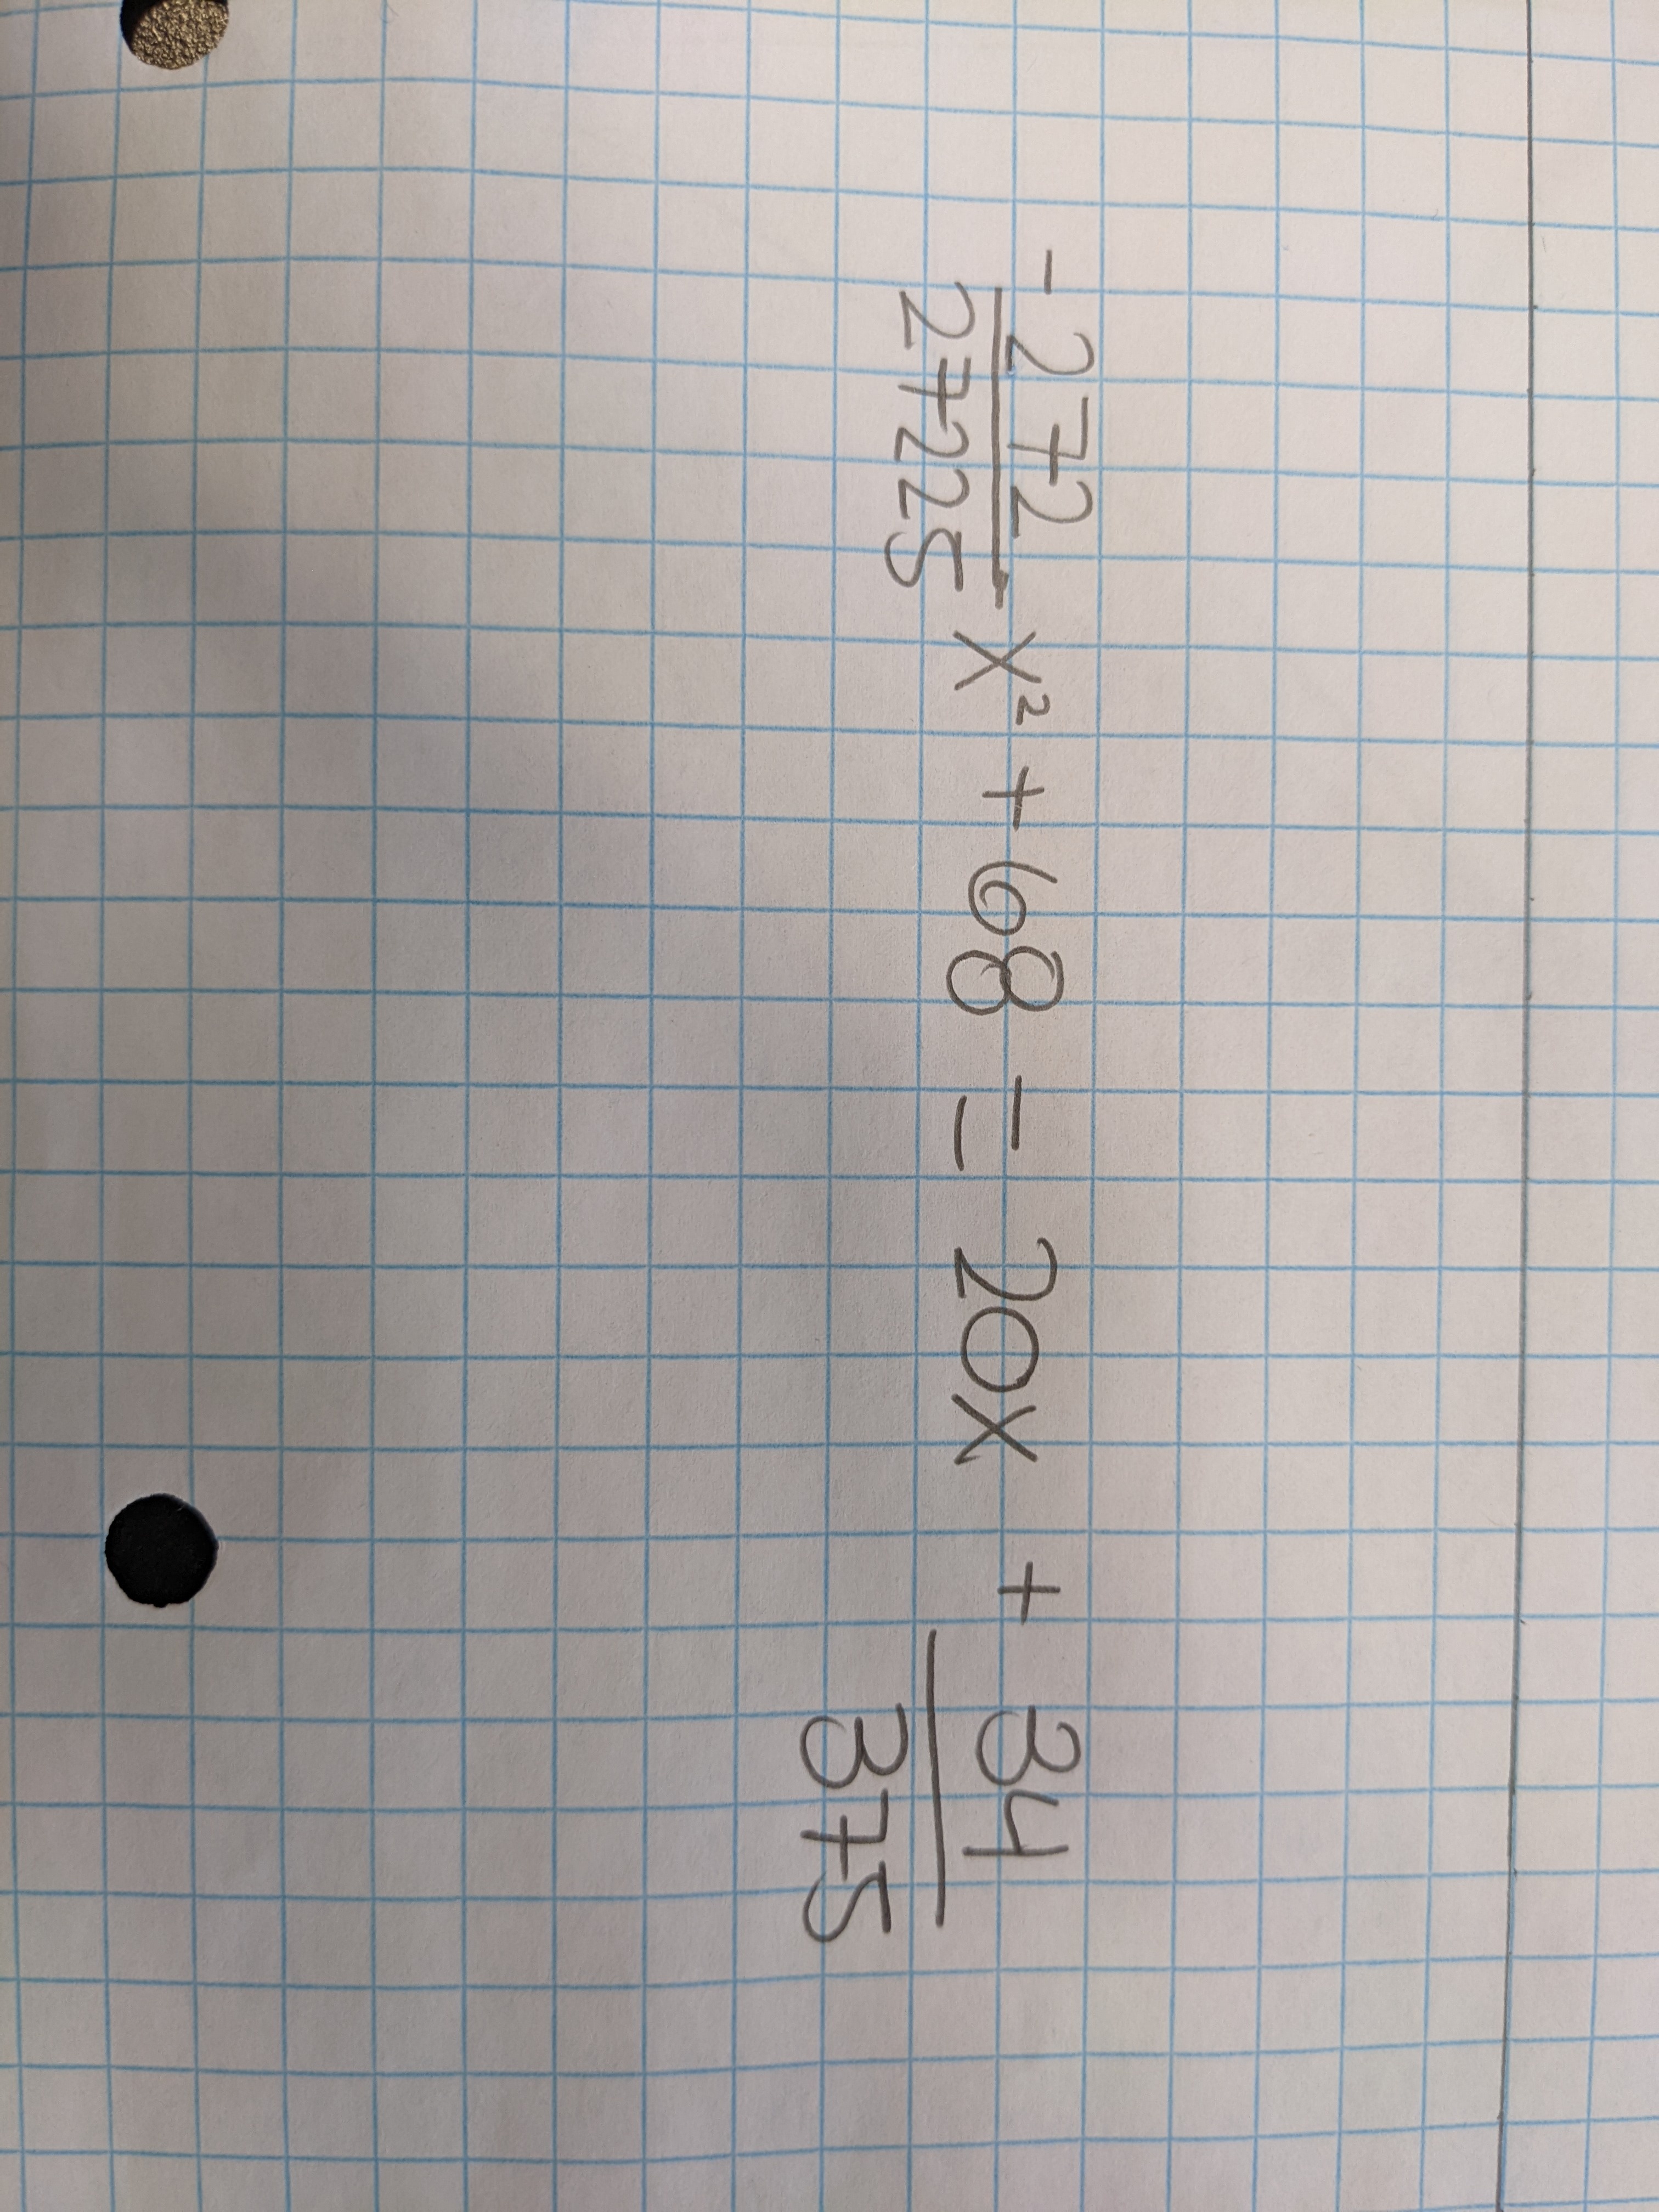 -272/27225 x² + 68 = 20x + 34/375